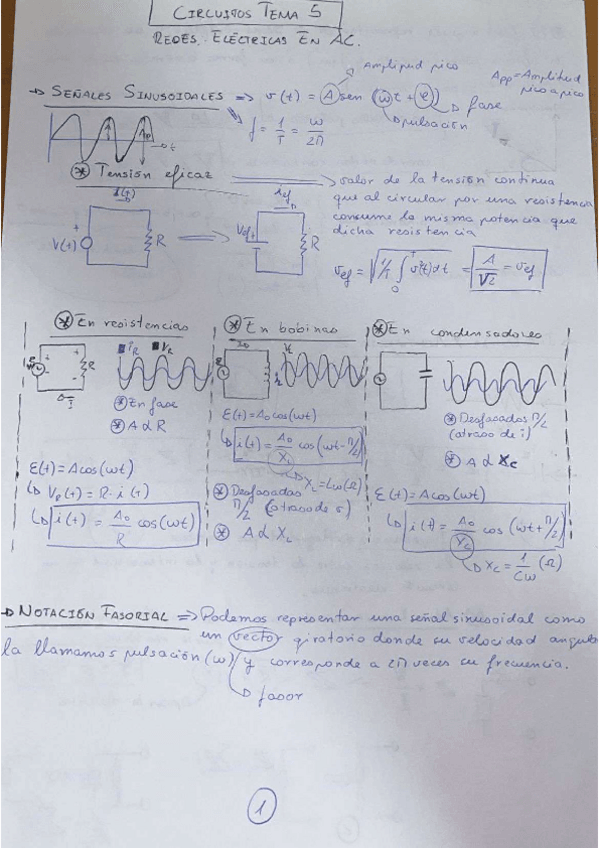 CIRCUITOS TEMA 5
REDES ELÉCTRICAS EN AC.
Amplitud pico
App = Amplitud pico a pico
→ SEÑALES SINUSOIDALES ⇒ v(t) = A sen (ωt + φ) → fase
→ pulsación
f = 1/T = ω/2π
App
t
⊛ Tensión eficaz → valor de la tensión continua
que al circular por una resistencia
consume la misma potencia que
dicha resistencia
i(t)
V(t) R
Vef R
Vef = √(1/T ∫₀ᵀ v²(t) dt) = A/√2 = Vef
⊛ En resistencias
R
⊛ En fase
⊛ A α R
ε(t) = A cos(ωt)
↳ VR(t) = R · i(t)
↳ i(t) = A₀/R cos(ωt)
⊛ En bobinas
ε(t) = A₀ cos(ωt)
↳ i(t) = A₀/XL cos(ωt - π/2)
↳ XL = Lω (Ω)
⊛ Desfasadas
π/2 (atraso de
⊛ A α XL
⊛ En condensadores
⊛ Desfasados π/2
(atraso de i)
⊛ A α Xc
ε(t) = A cos(ωt)
↳ i(t) = A₀/Xc cos(ωt + π/2)
↳ Xc = 1/Cω (Ω)
→ NOTACIÓN FASORIAL ⇒ Podemos representar una señal sinusoidal como
un vector giratorio donde su velocidad angu
la llamamos pulsación (ω) y corresponde a 2π veces su frecuencia.
↳ fasor
1